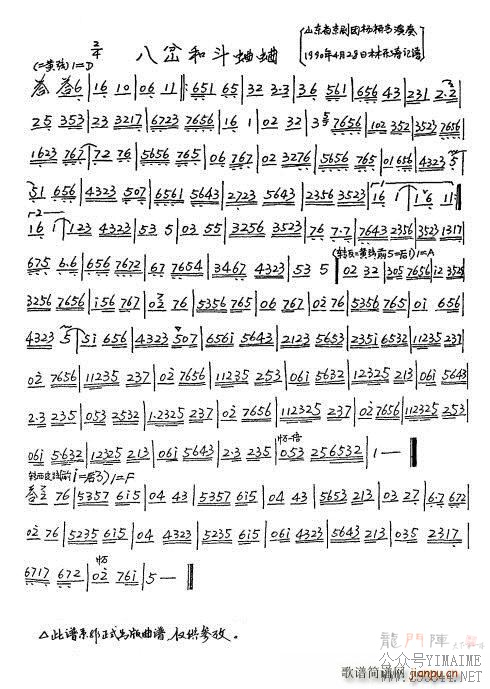 2/4 八岔和斗蛐蛐
山东省京剧团杨柏书演奏
(二黄弦) 1=D
1990年4月28日林林彤涛记谱
春 春6 | 16 10 | 06 11 ‖: 651 65 | 32 3·3 | 36 561 | 656 43 | 231 2·2
25 353 | 23 3217 | 6723 7656 | 16 1 | 02 32 | 3
1623 767 | 72 76 | 5656 765 | 06 767 | 02 3276 | 5656 765 | 01 656 | 4323 5
51 656 | 4323 507 | 6561 5643 | 2723 5643 | 2356 3523 | 16 1 | 16 11 :‖
16 1 | 123 4323 | 53 5 | 03 55 | 3256 3523 | 76 7·7 | 7643 2356 | 3523 1317
675 6·6 | 656 7672 | 67 7654 | 3467 4323 | 53 5 | 02 32 | 305 7656 | 12 352
3256 7656 | i56 767 | 02 76 | 5356 765 | 06 767 | 02 76 | 5356 765 | 0i 656
4323 5 | 5i 656 | 4323 507 | 656i 5643 | 2123 5653 | 235i 6532 | 11235 237
02 7656 | 11235 237 | 02 7656 | 11235 253 | 06i 5632 | 12325 213 | 06i 5643
2·3 235 | 053 2532 | 1·2325 237 | 02 7656 | 11235 237 | 02 7656 | 11235 253
06i 5·632 | 12325 213 | 06i 5643 | 2·3 235 | 0·53 256532 | 1 —
1=F
76 | 5357 6i5 | 04 43 | 5357 6i5 | 04 43 | 5653 213 | 03 27 | 6·7 672
02 76 | 5235 6i5 | 04 4323 | 5235 6i5 | 06i 4323 | 5643 213 | 035 2317
6717 672 | 02 76i | 5 —
△此谱系非正式出版曲谱，仅供参考。
龍門陣
公众号YIMAIME
歌谱简谱网
jianpu.cn